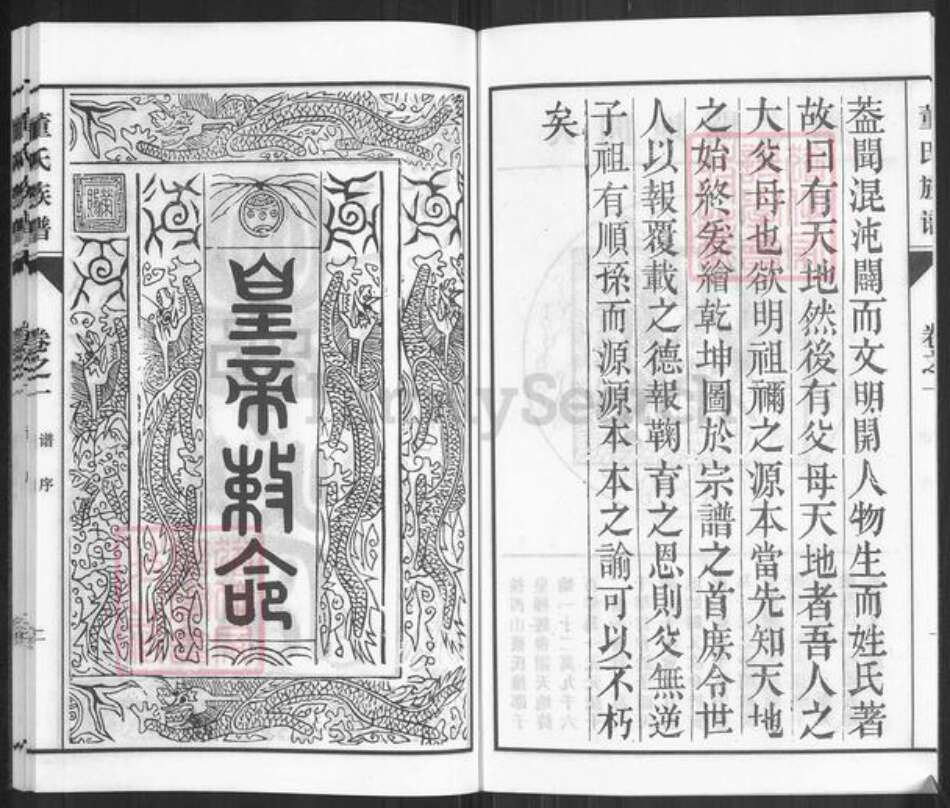 蓋聞混沌闢而文明開人物生而姓氏著
故曰有天地然後有父母天地者吾人之
大父母也欲明祖禰之源本當先知天地
之始終爰繪乾坤圖於宗譜之首庶令世
人以報覆載之德報鞠育之恩則父無逆
子祖有順孫而源源本本之諭可以不朽
矣
董氏族譜
卷之一
皇帝敕命
董氏族譜
卷之一
譜序
二
FamilySearch